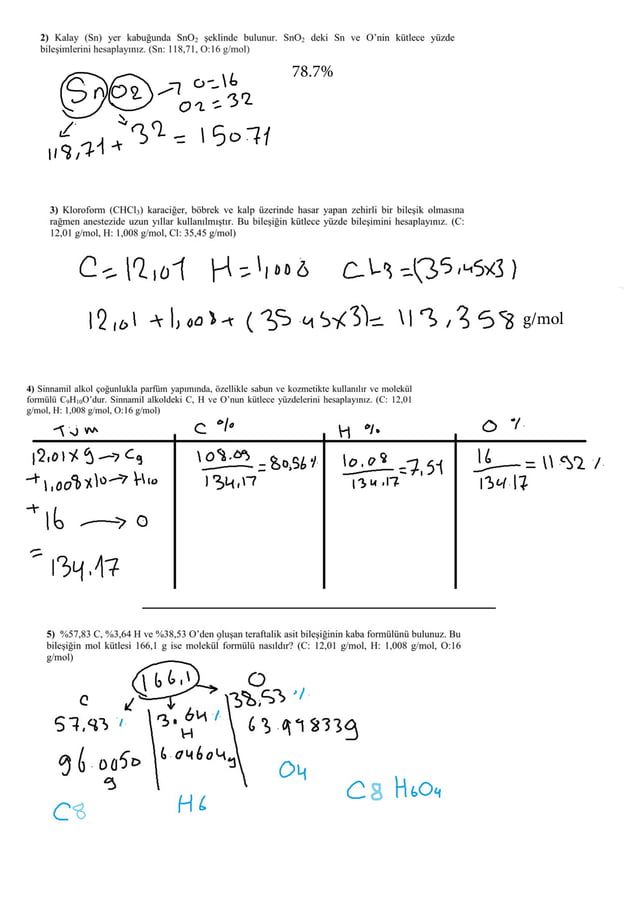 2) Kalay (Sn) yer kabuğunda SnO₂ şeklinde bulunur. SnO₂ deki Sn ve O’nin kütlece yüzde
bileşimlerini hesaplayınız. (Sn: 118,71, O:16 g/mol)
78.7%
SnO2 → O=16
O2=32
118,71 + 32 = 150.71
3) Kloroform (CHCl₃) karaciğer, böbrek ve kalp üzerinde hasar yapan zehirli bir bileşik olmasına
rağmen anestezide uzun yıllar kullanılmıştır. Bu bileşiğin kütlece yüzde bileşimini hesaplayınız. (C:
12,01 g/mol, H: 1,008 g/mol, Cl: 35,45 g/mol)
C=12,01 H=1,008 CL3=(35,45x3)
12,01 +1,008+ (35.45x3)= 113,358 g/mol
4) Sinnamil alkol çoğunlukla parfüm yapımında, özellikle sabun ve kozmetikte kullanılır ve molekül
formülü C₉H₁₀O’dur. Sinnamil alkoldeki C, H ve O’nun kütlece yüzdelerini hesaplayınız. (C: 12,01
g/mol, H: 1,008 g/mol, O:16 g/mol)
Tüm C % H % O %
12,01x9→C9 108.09/134,17 =80,56% 10.08/134,17 =7,51 16/134.17 = 11 92 %
+1,008x10→H10
+16 → O
= 134.17
5) %57,83 C, %3,64 H ve %38,53 O’den oluşan teraftalik asit bileşiğinin kaba formülünü bulunuz. Bu
bileşiğin mol kütlesi 166,1 g ise molekül formülü nasıldır? (C: 12,01 g/mol, H: 1,008 g/mol, O:16
g/mol)
166,1
C O
57,83 % 3.64 % 38,53 %
H
96.0050 g 6.04604g 63.998339
C8 H6 O4
C8 H6O4